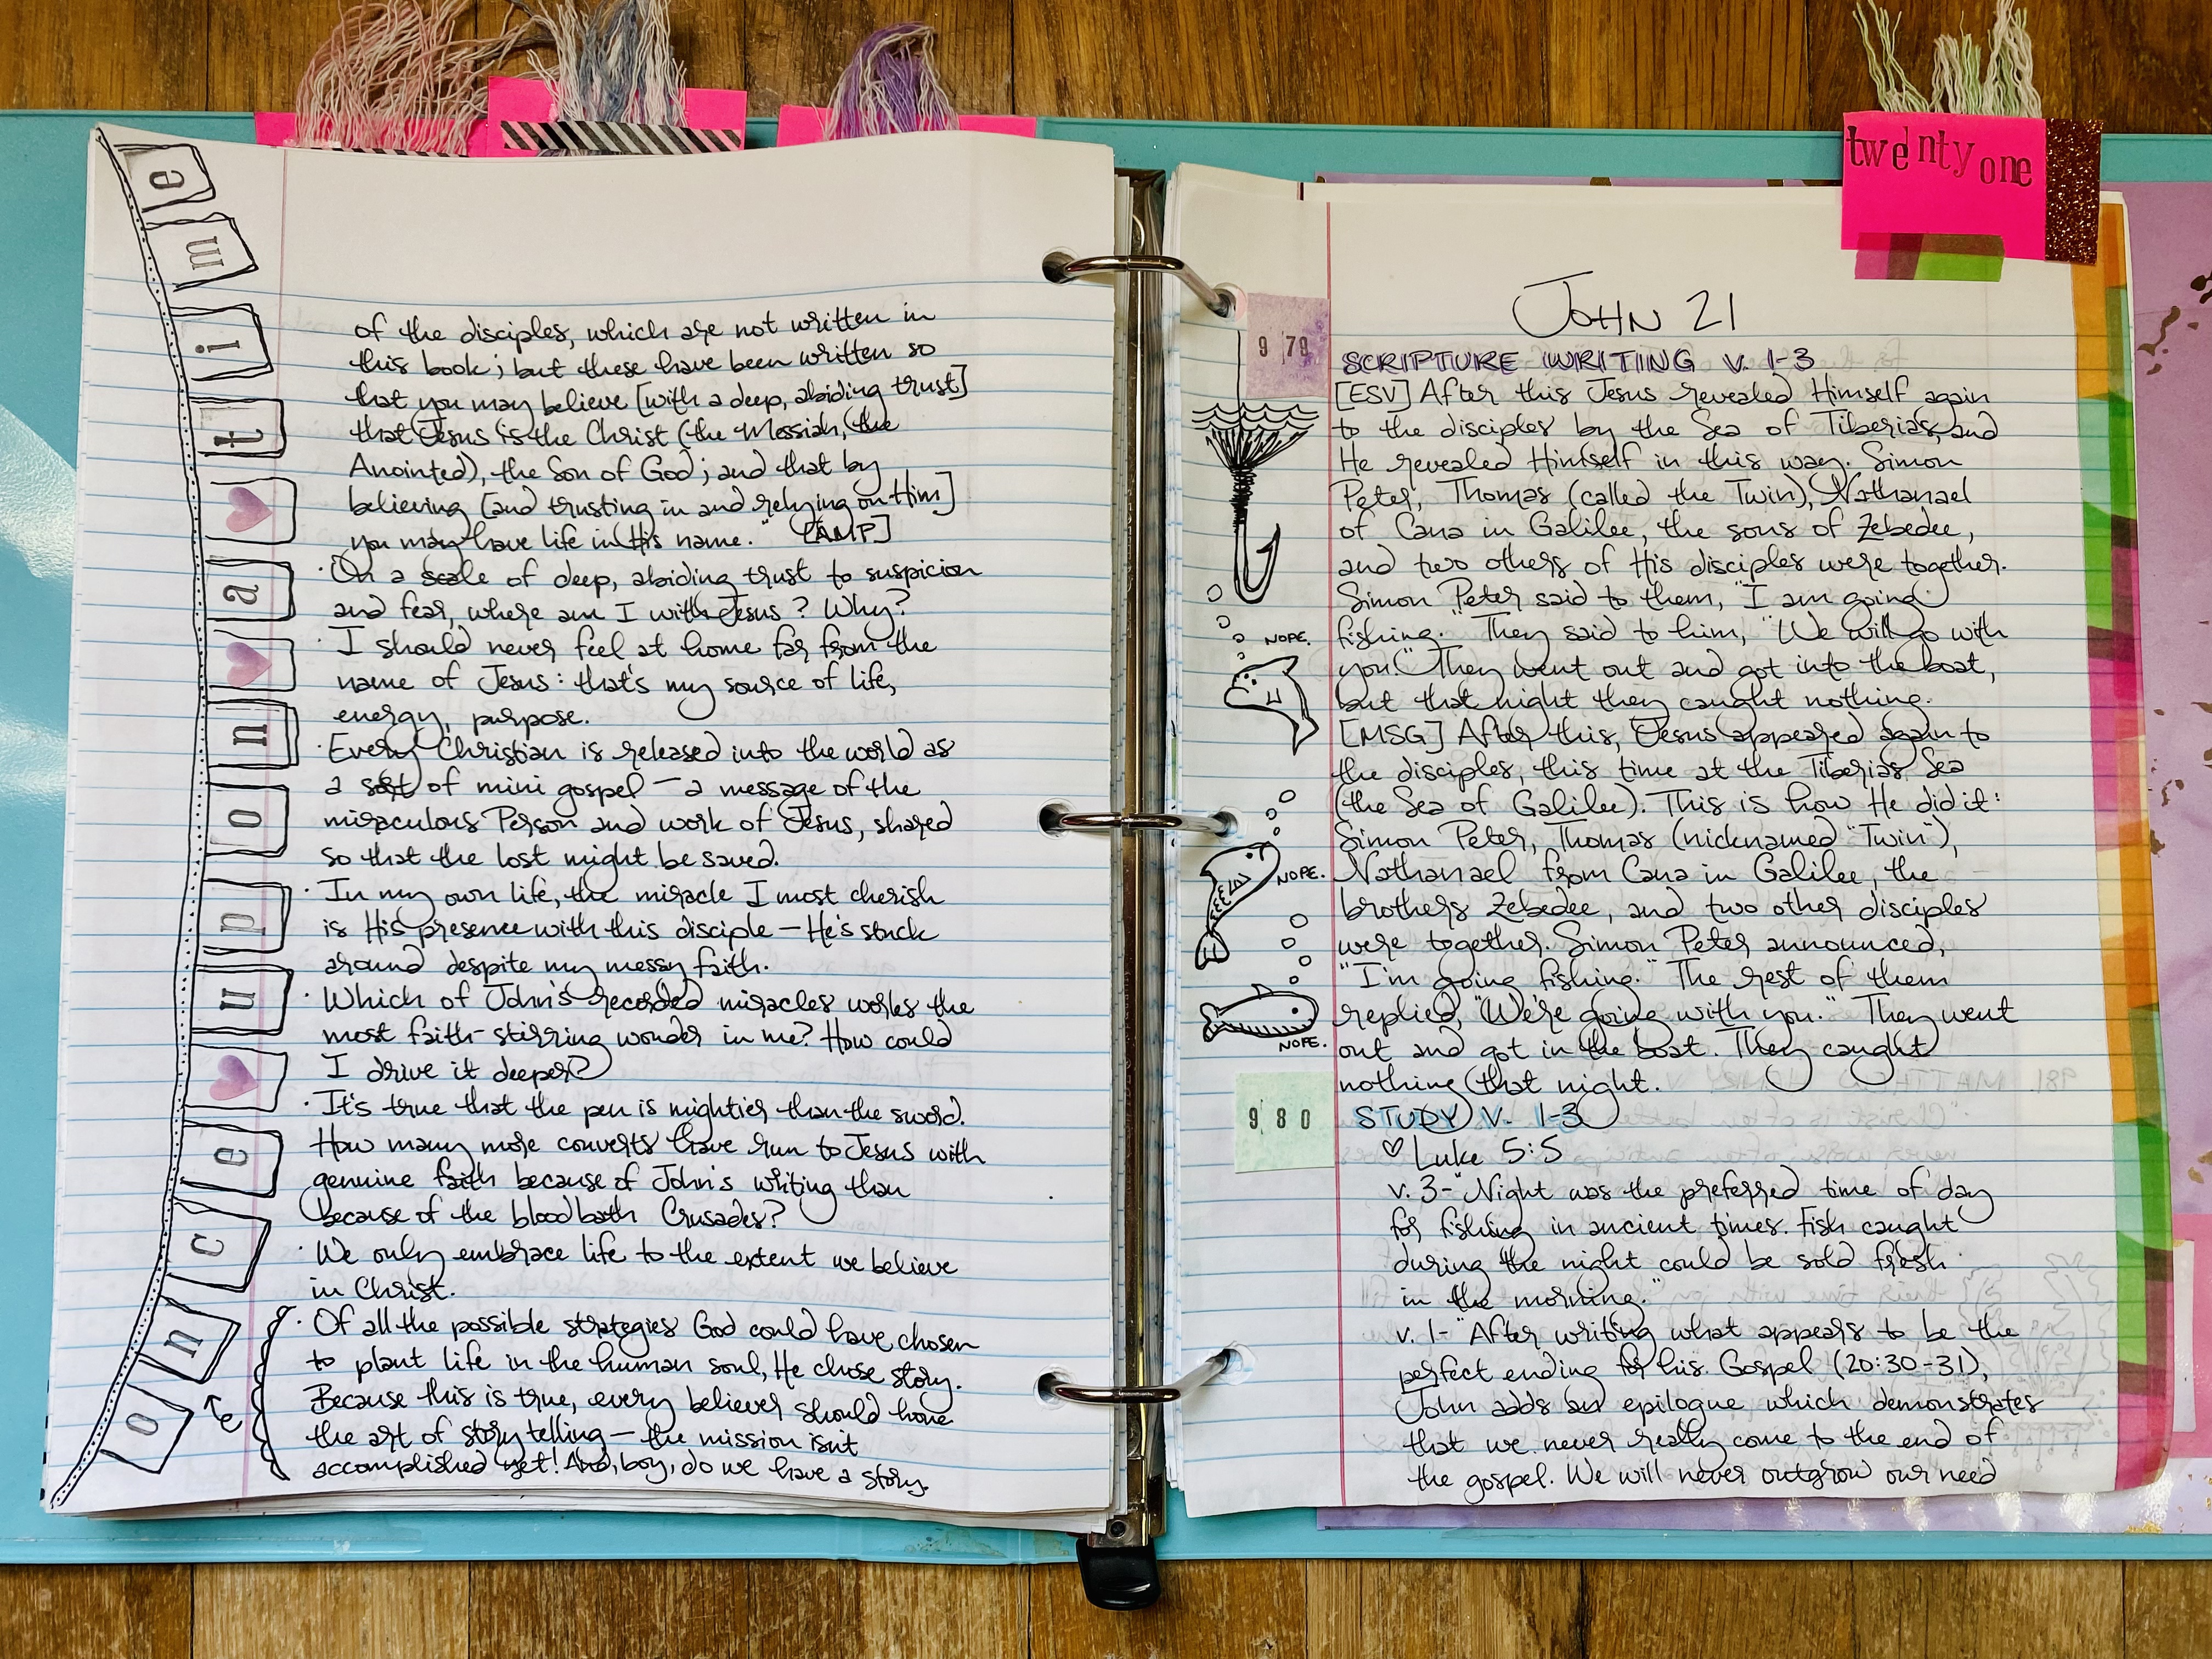 once upon a time
of the disciples, which are not written in
this book; but these have been written so
that you may believe [with a deep, abiding trust]
that Jesus is the Christ (the Messiah, the
Anointed), the Son of God; and that by
believing [and trusting in and relying on Him]
you may have life in His name." [AMP]
· On a scale of deep, abiding trust to suspicion
and fear, where am I with Jesus? Why?
· I should never feel at home far from the
name of Jesus: that's my source of life,
energy, purpose.
· Every Christian is released into the world as
a sort of mini gospel — a message of the
miraculous Person and work of Jesus, shared
so that the lost might be saved.
· In my own life, the miracle I most cherish
is His presence with this disciple — He's stuck
around despite my messy faith.
· Which of John's recorded miracles works the
most faith-stirring wonder in me? How could
I drive it deeper?
· It's true that the pen is mightier than the sword.
How many more converts have run to Jesus with
genuine faith because of John's writing than
because of the bloodbath Crusades?
· We only embrace life to the extent we believe
in Christ.
· Of all the possible strategies God could have chosen
to plant life in the human soul, He chose story.
Because this is true, every believer should hone
the art of story telling — the mission isn't
accomplished yet! And, boy, do we have a story.
twenty one
JOHN 21
979
SCRIPTURE WRITING V. 1-3
[ESV] After this Jesus revealed Himself again
to the disciples by the Sea of Tiberias, and
He revealed Himself in this way. Simon
Peter, Thomas (called the Twin), Nathanael
of Cana in Galilee, the sons of Zebedee,
and two others of His disciples were together.
Simon Peter said to them, "I am going
NOPE.
fishing." They said to him, "We will go with
you." They went out and got into the boat,
but that night they caught nothing.
[MSG] After this, Jesus appeared again to
the disciples, this time at the Tiberias Sea
(the Sea of Galilee). This is how He did it:
Simon Peter, Thomas (nicknamed "Twin"),
NOPE.
Nathanael from Cana in Galilee, the
brothers Zebedee, and two other disciples
were together. Simon Peter announced,
"I'm going fishing." The rest of them
replied, "We're going with you." They went
NOPE.
out and got in the boat. They caught
nothing that night.
980
STUDY V. 1-3
♡ Luke 5:5
v. 3- "Night was the preferred time of day
for fishing in ancient times. Fish caught
during the night could be sold fresh
in the morning."
v. 1- "After writing what appears to be the
perfect ending for his Gospel (20:30-31),
John adds an epilogue which demonstrates
that we never really come to the end of
the gospel. We will never outgrow our need